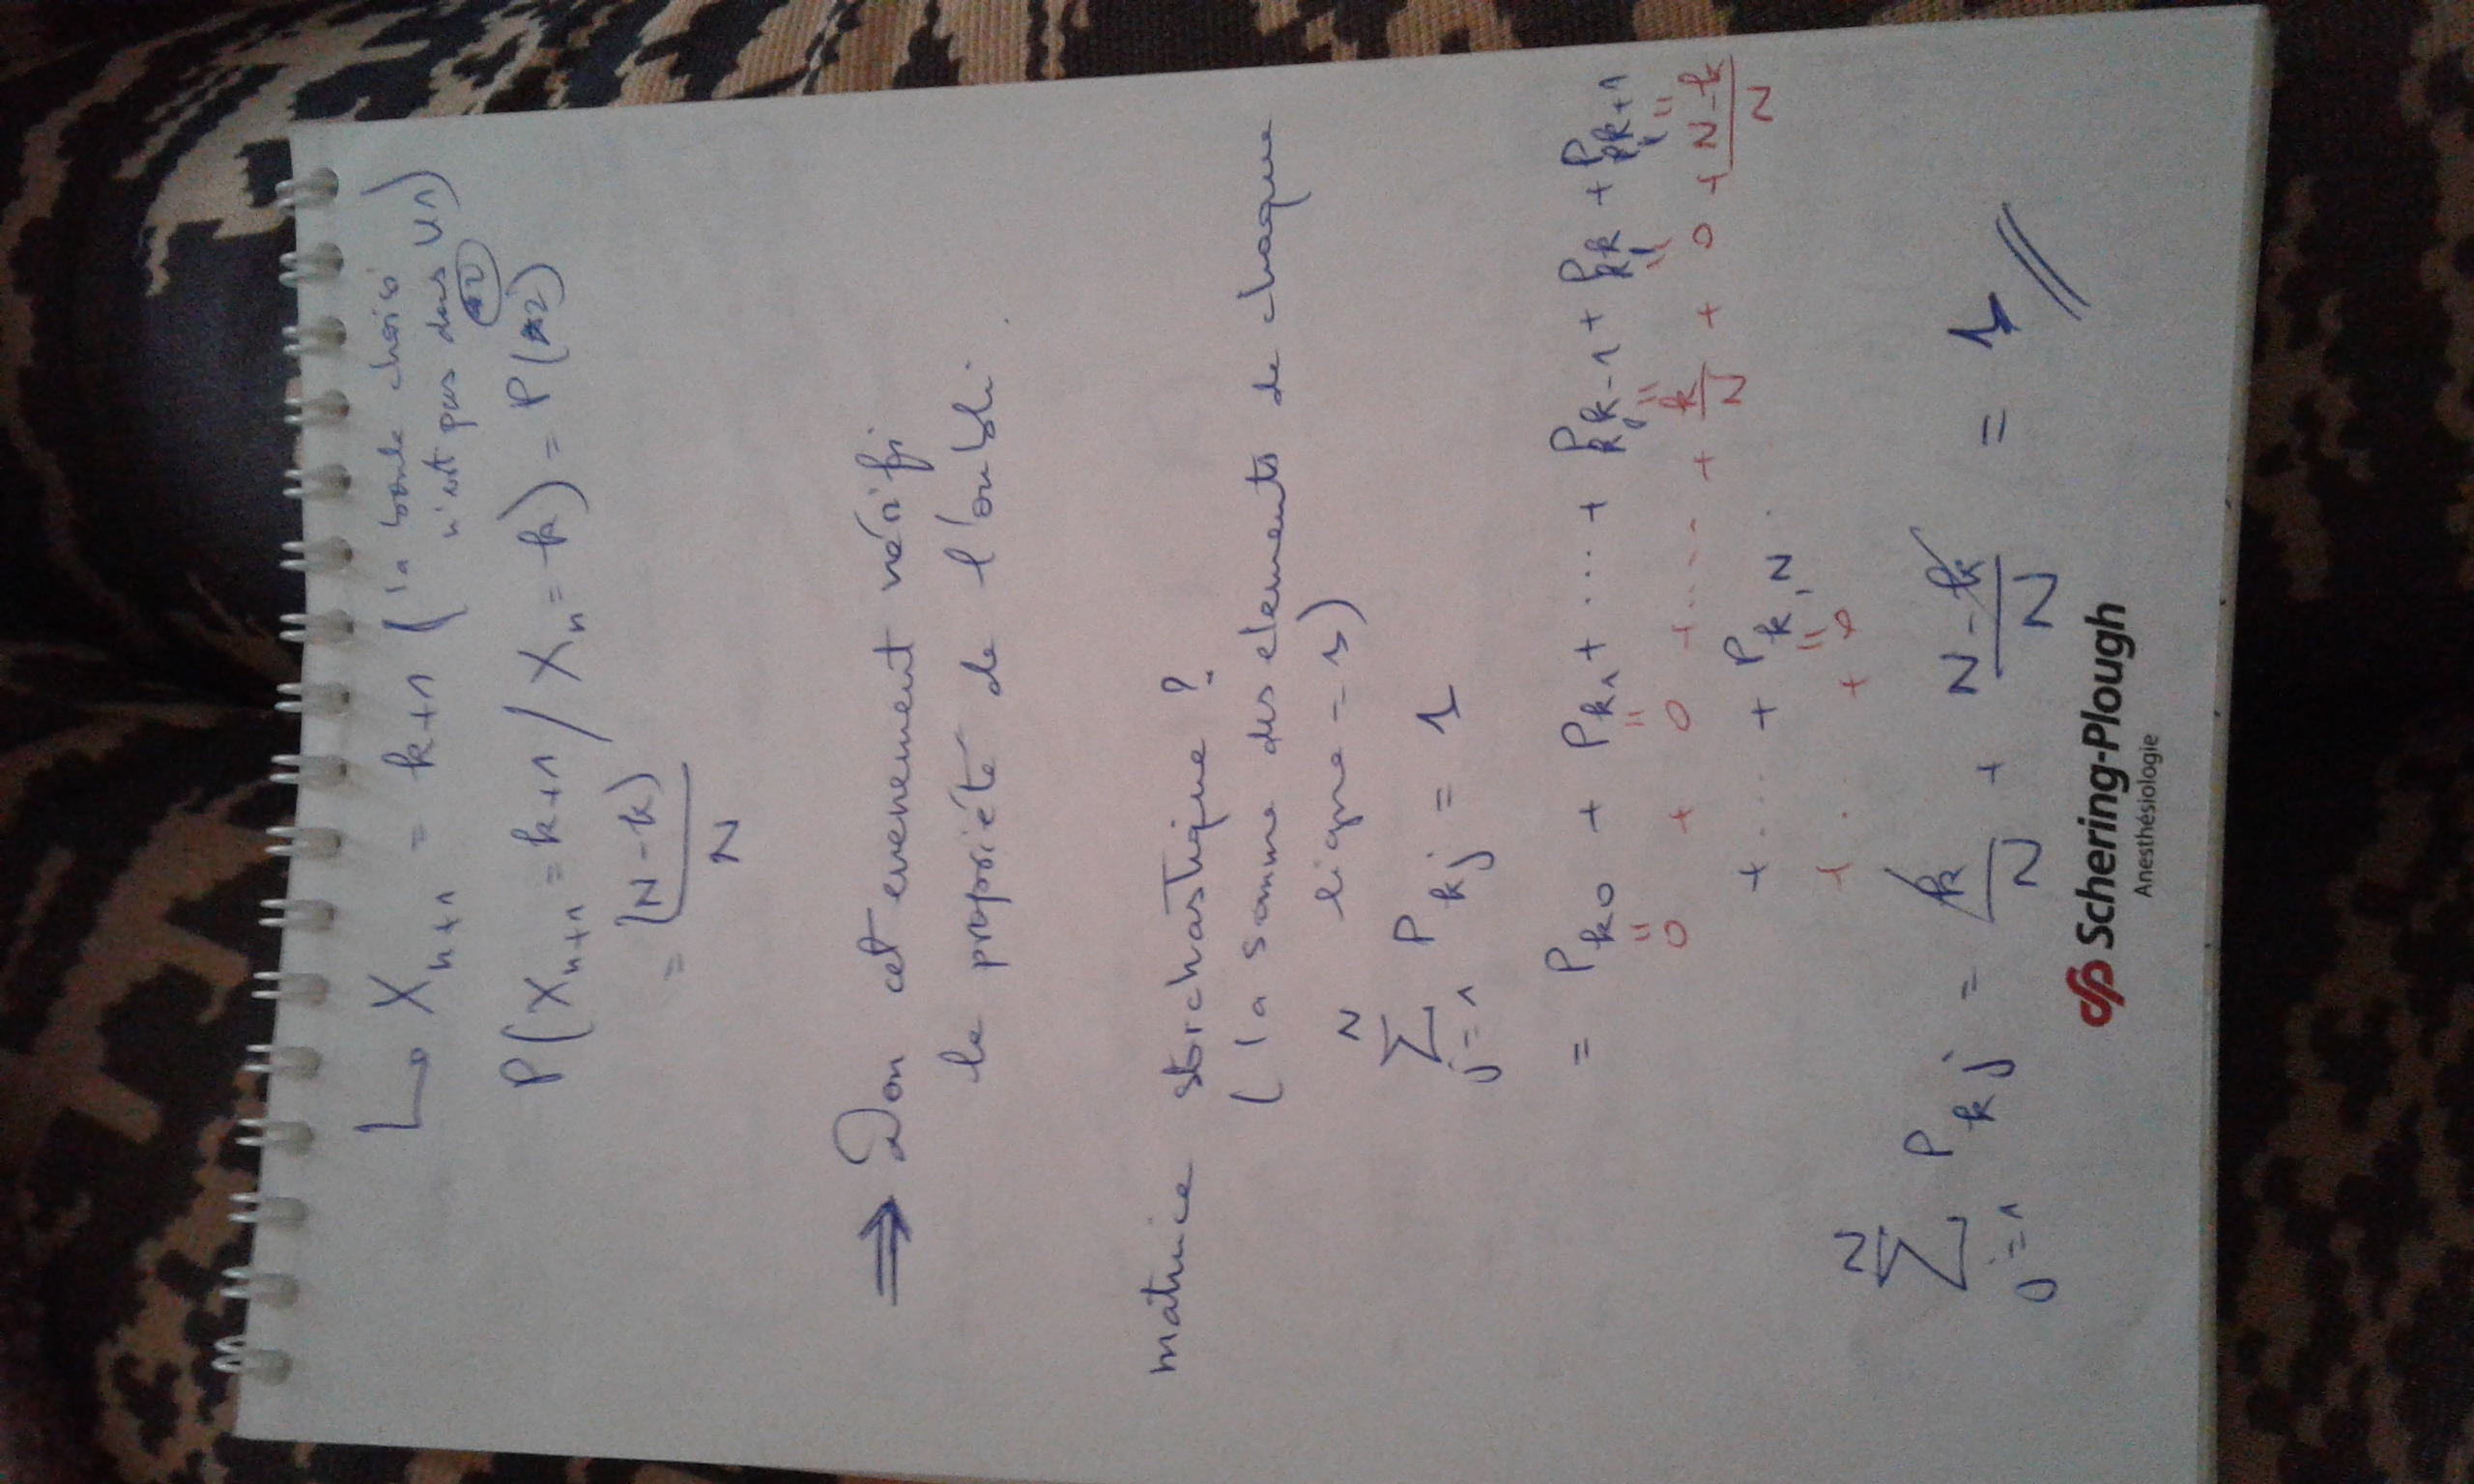 ↳ X_{n+1} = k+1 (la boule choisi
n'est pas dans U1)
P(X_{n+1} = k+1 / X_n = k) = P(*2)
= (N-k)/N
⇒ Don cet evenement vérifi
la propriété de l'oubli.
matrice storchastique ?
( la somme des elements de chaque
ligne = 1)
∑_{j=1}^{N} P_{kj} = 1
= P_{k0} + P_{k1} + ... + P_{k,k-1} + P_{k,k} + P_{k,k+1}
0 + 0 + .... + k/N + 0 + (N-k)/N
+ ... + P_{k,N}
+ .. + 0
∑_{j=1}^{N} P_{kj} = k/N + (N-k)/N = 1 //
Schering-Plough
Anesthésiologie